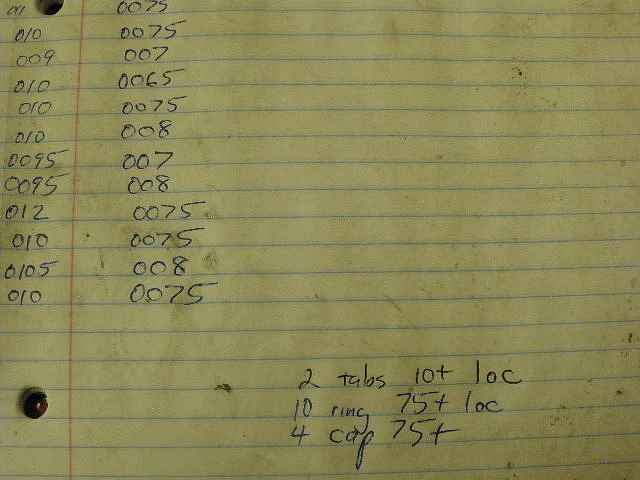 0075
010 0075
009 007
010 0065
010 0075
010 008
0095 007
0095 008
012 0075
010 0075
0105 008
010 0075
2 tabs 10+ loc
10 ring 75+ loc
4 cap 75+